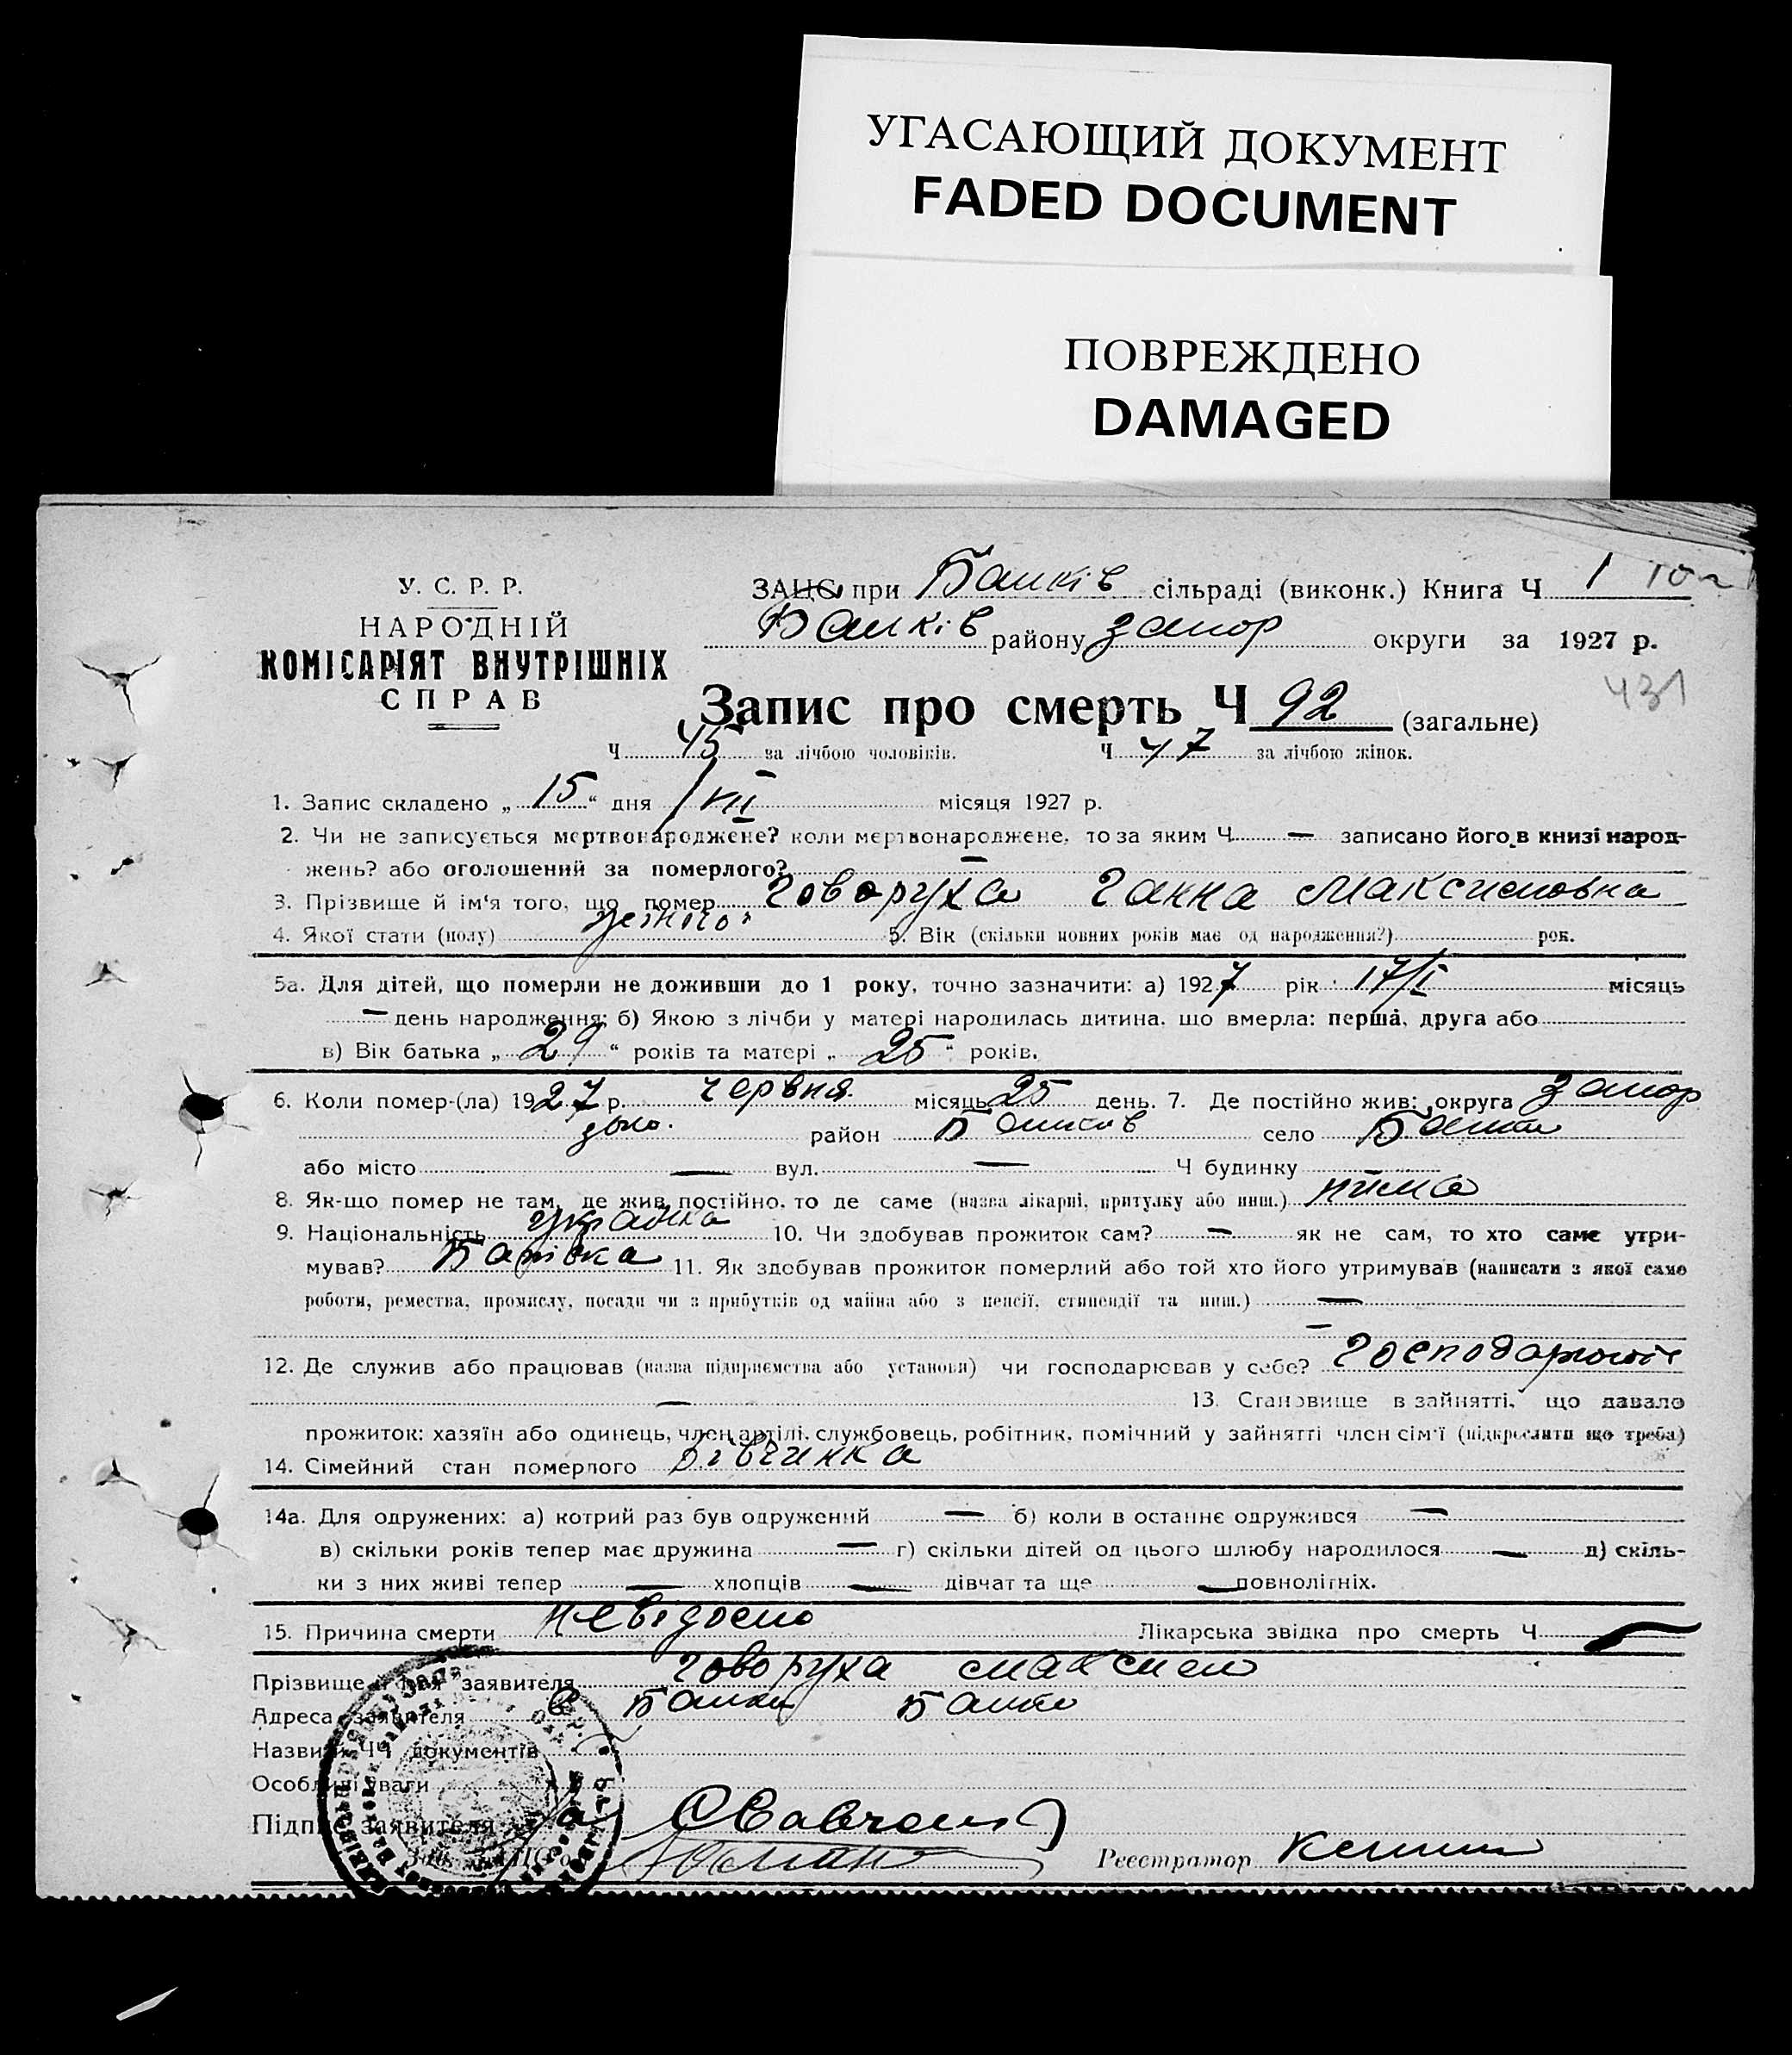 УГАСАЮЩИЙ ДОКУМЕНТ
FADED DOCUMENT
ПОВРЕЖДЕНО
DAMAGED
У. С. Р. Р.
НАРОДНІЙ
КОМІСАРІЯТ ВНУТРІШНІХ
СПРАВ
ЗАЦС при Балків сільраді (виконк.) Книга Ч 1
Балків району Запор округи за 1927 р.
431
Запис про смерть Ч 92 (загальне)
Ч 45 за лічбою чоловіків. Ч 47 за лічбою жінок.
1. Запис складено „ 15 “ дня / VII місяця 1927 р.
2. Чи не записується мертвонароджене? коли мертвонароджене, то за яким Ч — записано його в книзі народ-
жень? або оголошений за померлого? —
3. Прізвище й ім'я того, що помер Говоруха Ганна Максимовна
4. Якої стати (полу) 5. Вік (скільки повних років має од народження?) рок.
5а. Для дітей, що померли не доживши до 1 року, точно зазначити: а) 1927 рік 17/I місяць
— день народження; б) Якою з лічби у матері народилась дитина, що вмерла: перша, друга або
в) Вік батька „ 29 “ років та матері „ 25 “ років.
6. Коли помер-(ла) 1927 р. червня місяць 25 день. 7. Де постійно жив: округа Запор
район село Балки
або місто — вул. — Ч будинку
8. Як-що помер не там, де жив постійно, то де саме (назва лікарні, притулку або инш.)
9. Національність украінка 10. Чи здобував прожиток сам? — як не сам, то хто саме утри-
мував? 11. Як здобував прожиток померлий або той хто його утримував (написати з якої само
роботи, ремества, промислу, посади чи з прибутків од майна або з пенсії, стипендії та инш.) —
—
12. Де служив або працював (назва підприємства або установи) чи господарював у себе?
— 13. Становище в зайнятті, що давало
прожиток: хазяїн або одинець, член артілі, службовець, робітник, помічний у зайнятті член сім'ї (підкреслити що треба)
14. Сімейний стан померлого дівчинка
14а. Для одружених: а) котрий раз був одружений — б) коли в останнє одружився —
в) скільки років тепер має дружина — г) скільки дітей од цього шлюбу народилося — д) скіль-
ки з них живі тепер — хлопців — дівчат та ще — повнолітніх.
15. Причина смерти невідомо Лікарська звідка про смерть Ч —
Прізвище й ім'я заявителя Говоруха Максим
Адреса заявителя с Балки Балки
Назви й ЧЧ документів
Особливі уваги
Підпис заявителя
Реєстратор